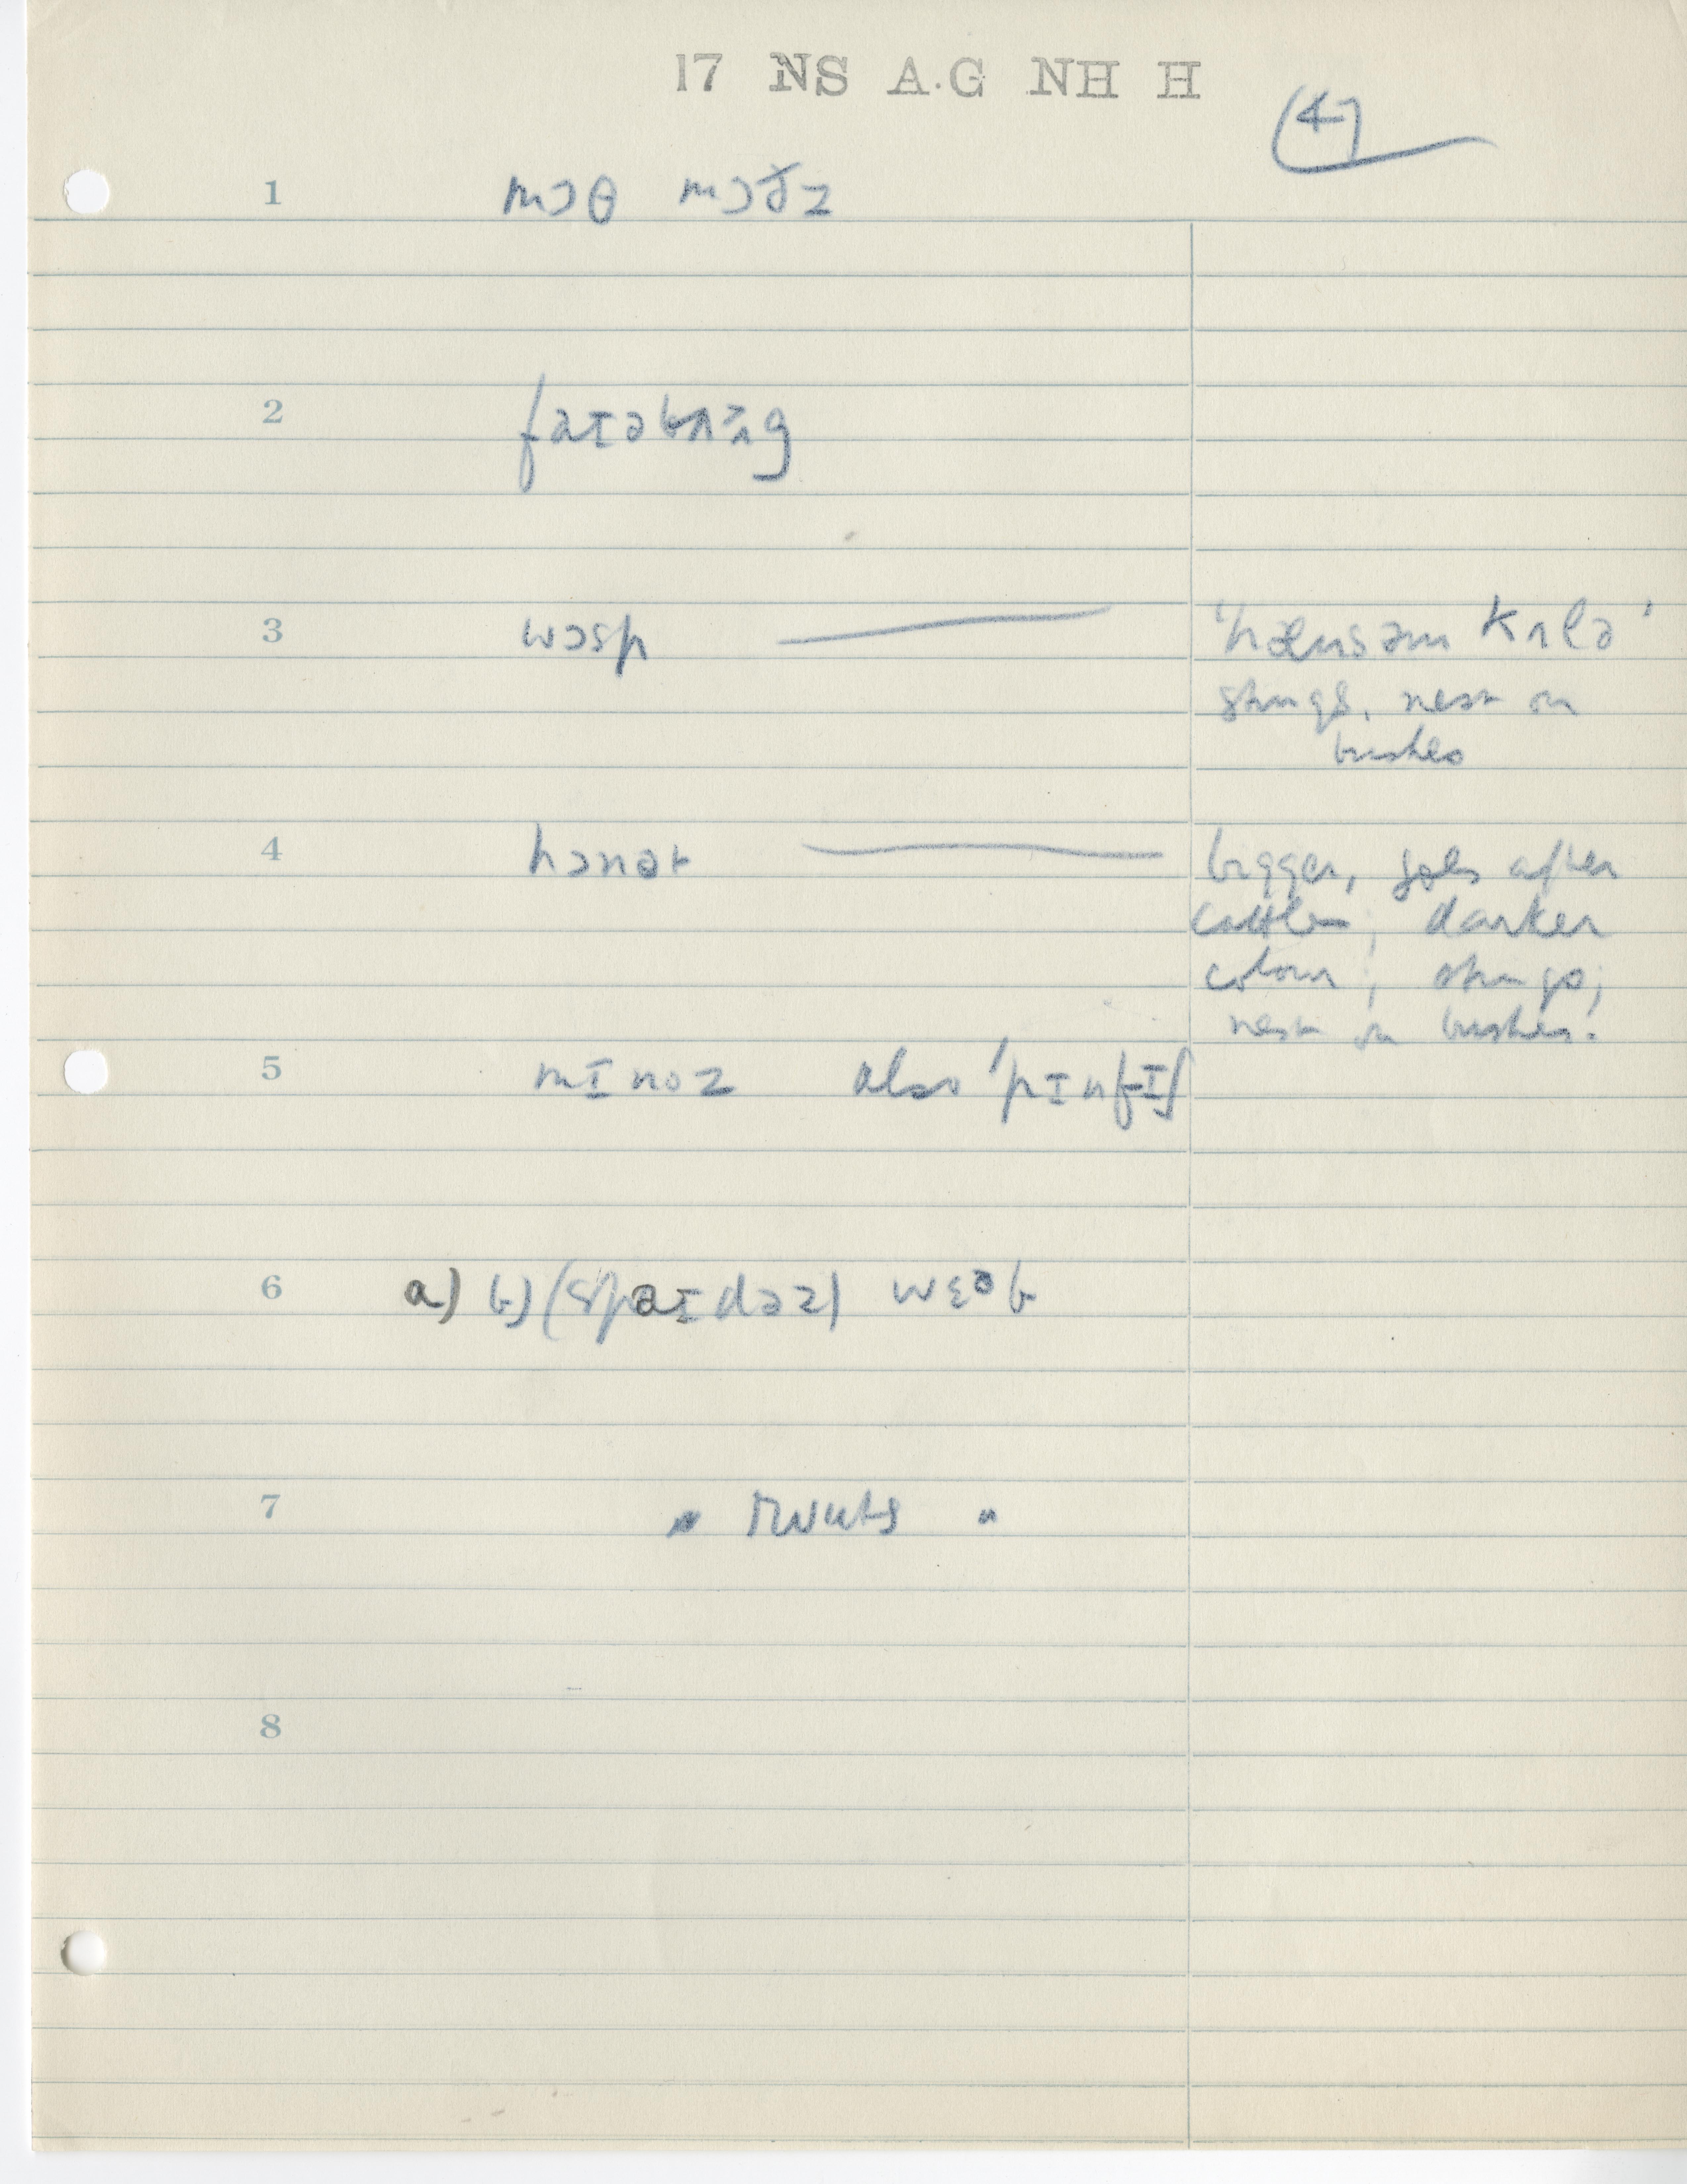 17 NS A.G NH H
(4)
1 mɔθ mɔðz
2
3 wɔsp 'hænsəm kʌlə'
stings, nest on
bushes
4 hɔnət bigger, goes after
cattle, darker
colour, stings,
nest on bushes.
5 mɪnoz also 'pɪnfɪʃ
6 a) b) (spaɪdəz) wɛəb
7 " ruuts "
8